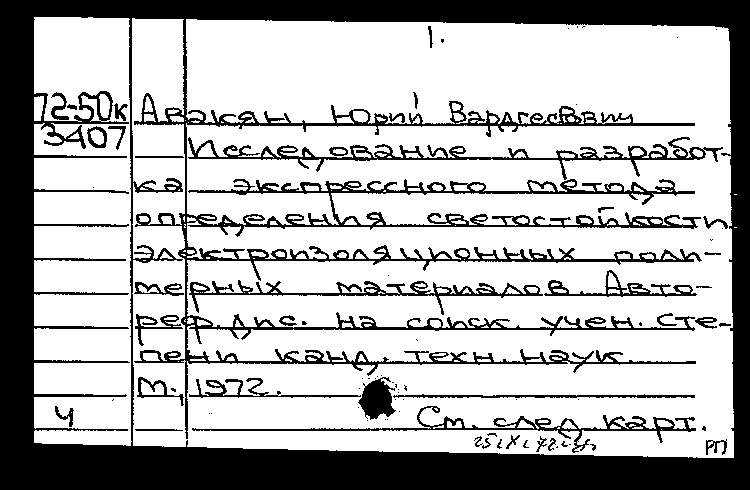 1.
72-50к Авакян, Юрий Вардгесович
3407 Исследование и разработ-
ка экспрессного метода
определения светостойкости
электроизоляционных поли-
мерных материалов. Авто-
реф. дис. на соиск. учен. сте-
пени канд. техн. наук.
М., 1972.
ч См. след. карт.
РП